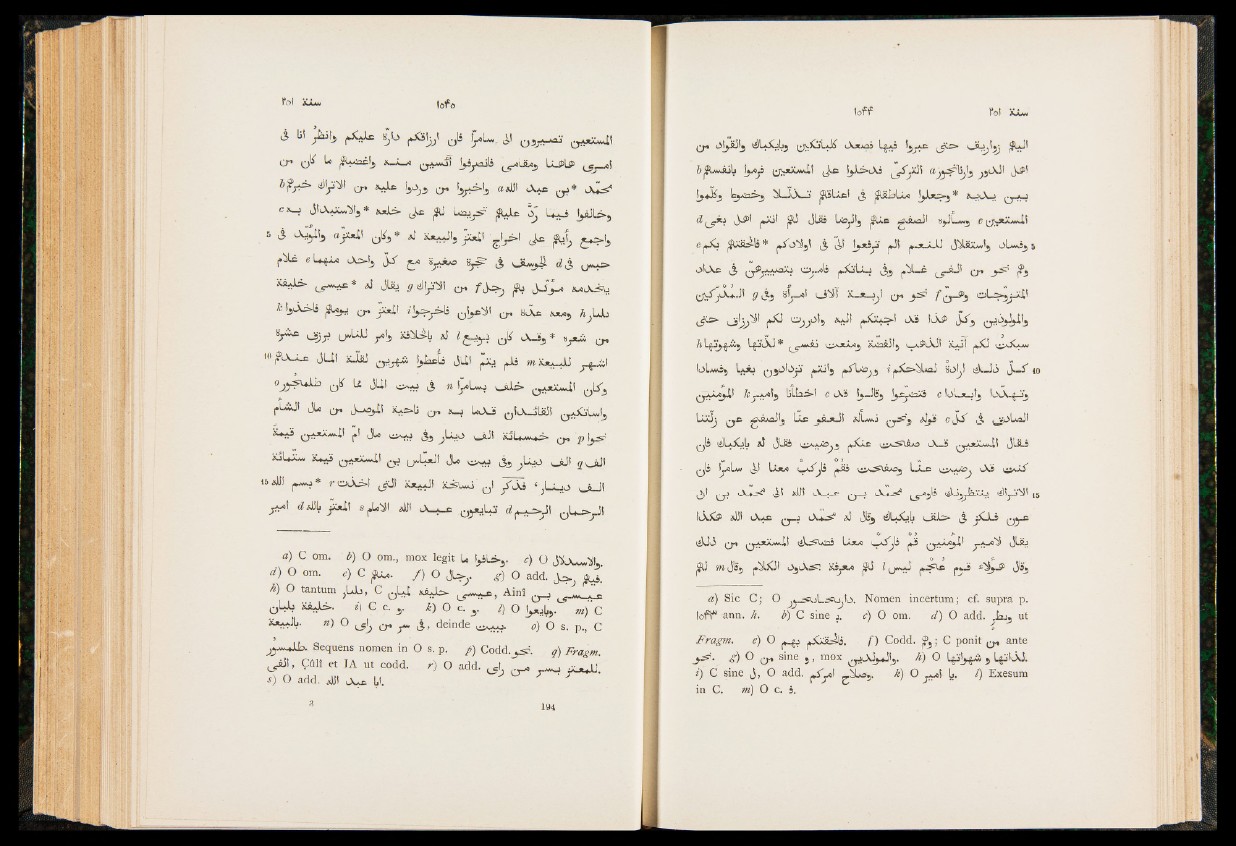 ١٥٤٤ سنة ٢٥١
اليهم زواريق حتى عبروا فيها فصعد كلباتكين وبايكباك والقوّاد من
اهل الدور وارناتجور a التركىّ فدخلوا على المستعين فرموا بانفسهم b
بين يديه *وجعلوا مناطقهم فى اعناقهم تذلّلا وخضوعا وكلّموا
المستعين c وسألوه الصفح عنهم والرضا فقال لهم انتم اهل بغى d
5 وفساد واستقلال للنعم الم ترفعوا الىّ فى اولادكم *فالحقتهم بكم e
وهم نحو من الفى غلام وفى بناتكم فامرت بتصييرهنّ فى عداد
المتزوّجات وهنّ f نحو من اربعة آلاف امرأة وفى g المدركين
والمولودين وكلّ هذا قد اجبتكم اليه وادررت لكم الارزاق حتى
سبكتُ لكم آنية الذهب والفضّة ومنعت نفسى *لذّتها وشهوتها h
10 كلّ ذلك ارادة لصلاحكم i ورضاكم وانتم تزدادون بغيا وفسادا
وتهدّدا وابعادا c فتضرّعوا وقالوا قد c اخطأنا وامير k المؤمنين
الصادق فى كلّ c قوله ونحن نسأله العفو عنّا والصفح عن زلّتنا
فقال المستعين قد صفحت عنكم ورضيت فقال له بايكباك فان
كنت قد رضيت عنّا وصفحت فقُمْ فاركب معنا الى سامرّا فان
15 الاتراك ينتظرونك فاومى محمّد بن عبد الله الى محمّد بن ابى
عون فلكز فى حلق بايكباك وقال له محمّد بن عبد الله هكذا
يقال لامير المؤمنين قُمْ فاركبْ معنا فضحك المستعين من ذلك
وقال هؤلاء قوم عُجْم ليس l لهم معرفة بحدود الكلام وقال m لهم
a) Sic C; O دارىحاىحور. Nomen incertum; cf. supra p.
١٥٤٣ ann. h. b) C sine ب. c) O om. d) O add. وبطر ut
Fragm. e) O فالحقتكم بهم. f) Codd. وهم; C ponit من ante
نحو. g) O من sine و, mox والمولدين. h) O لذاتها و شهواتها.
i) C sine ل, O add. وصلاح امركم. k) O يا امير. l) Exesum
in C. m) O c. ف.
سنة ٢٥١ ١٥٤٥
المستعين تصيرون الى سامرّا فان ارزاقكم دارّة عليكم وانظُرُ انا فى
امرى هاهنا ومقامى فانصرفوا آئسين منه واغضبهم ما كان من
محمّد *بن عبد الله a واخبروا من وردوا عليه من الاتراك خبرهم b
وخالفوا فيما ردّ عليهم تحريضا لهم على خلعه *والاستبدال به c
5 واجمع رأيهم على اخراج المعتزّ والبيعة له *وكان المعتزّ a والمؤيّد فى
حبس فى d الجوسق فى حجرة صغيرة مع كلّ واحد منهما e غلام
يخدمه موكّل بهم رجل f من الاتراك g يقال له *عيسى خليفة
بلبار h ومعه عدّة من الاعوان فاخرجوا i المعتزّ من يومهم فاخذوا k
من شعره *وقد l كان بويع له بالخلافة وامر للناس برزق عشرة
10 اشهر للبيعة m فلم يتمّ المال فأعطوا شهرين لقلّة المال عندهم
وكان المستعين خلف بسامرّا n فى بيت المال مما كان طلمجور o
واساتكين القائدان قدما به من ناحية الموصل من مال الشأم
نحوا p من خمسمائة الف دينار وفى بيت مال امّ المستعين قيمة
الف q الف دينار وفى بيت مال العبّاس بن المستعين قيمة ستّمائة
15 الف دينار، فذُكر ان نسخة البيعة التى اخذت r *بسم الله
الرحمن الرحيم d تبايعون عبد الله الامام s المعتزّ بالله d امير
a) C om. b) O om., mox legit وخافوا ما. c) O والاستدلال.
d) O om. e) C منهم. f) O وحل. g) O add. فيهم رجل.
h) O tantum بلبار, C عيسى خليفة لميان, Ainî عيسى بن
خليفة بلبان. i) C c. و. k) O c. و. l) O وبايعوا. m) C
بالبيعة. n) O فى سر من راى, deinde ببيت. o) O s. p., C
طلمسور. Sequens nomen in O s. p. p) Codd. نحو. q) Fragm.
الفى, Çûlî et IA ut codd. r) O add. للمعتز بسر من راى.
s) O add. ابا عبد الله.
194